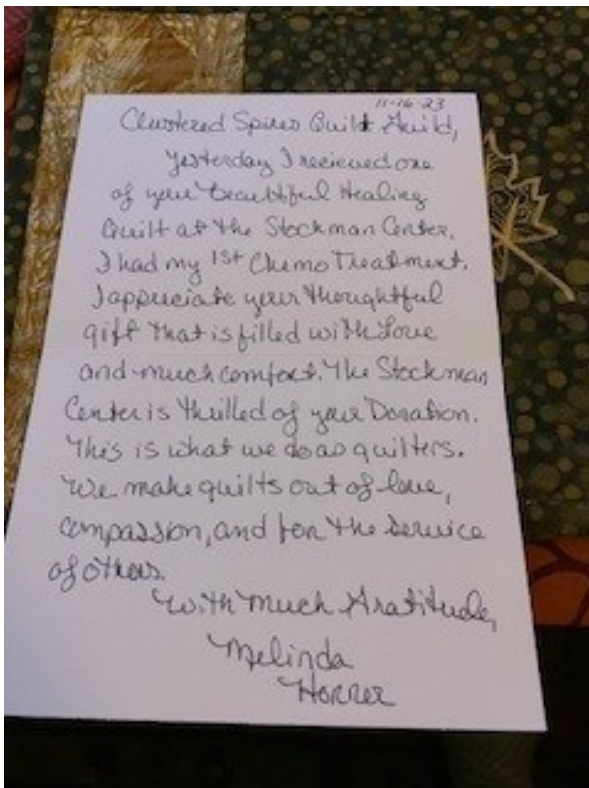 11-16-23
Clustered Spires Quilt Guild,
Yesterday I recieved one
of your beautiful Healing
Quilt at the Stockman Center.
I had my 1st Chemo Treatment.
I appreciate your thoughtful
gift that is filled with Love
and much comfort. The Stockman
Center is thrilled of your Donation.
This is what we do as quilters.
We make quilts out of love,
compassion, and for the service
of others.
With Much Gratitude,
Melinda